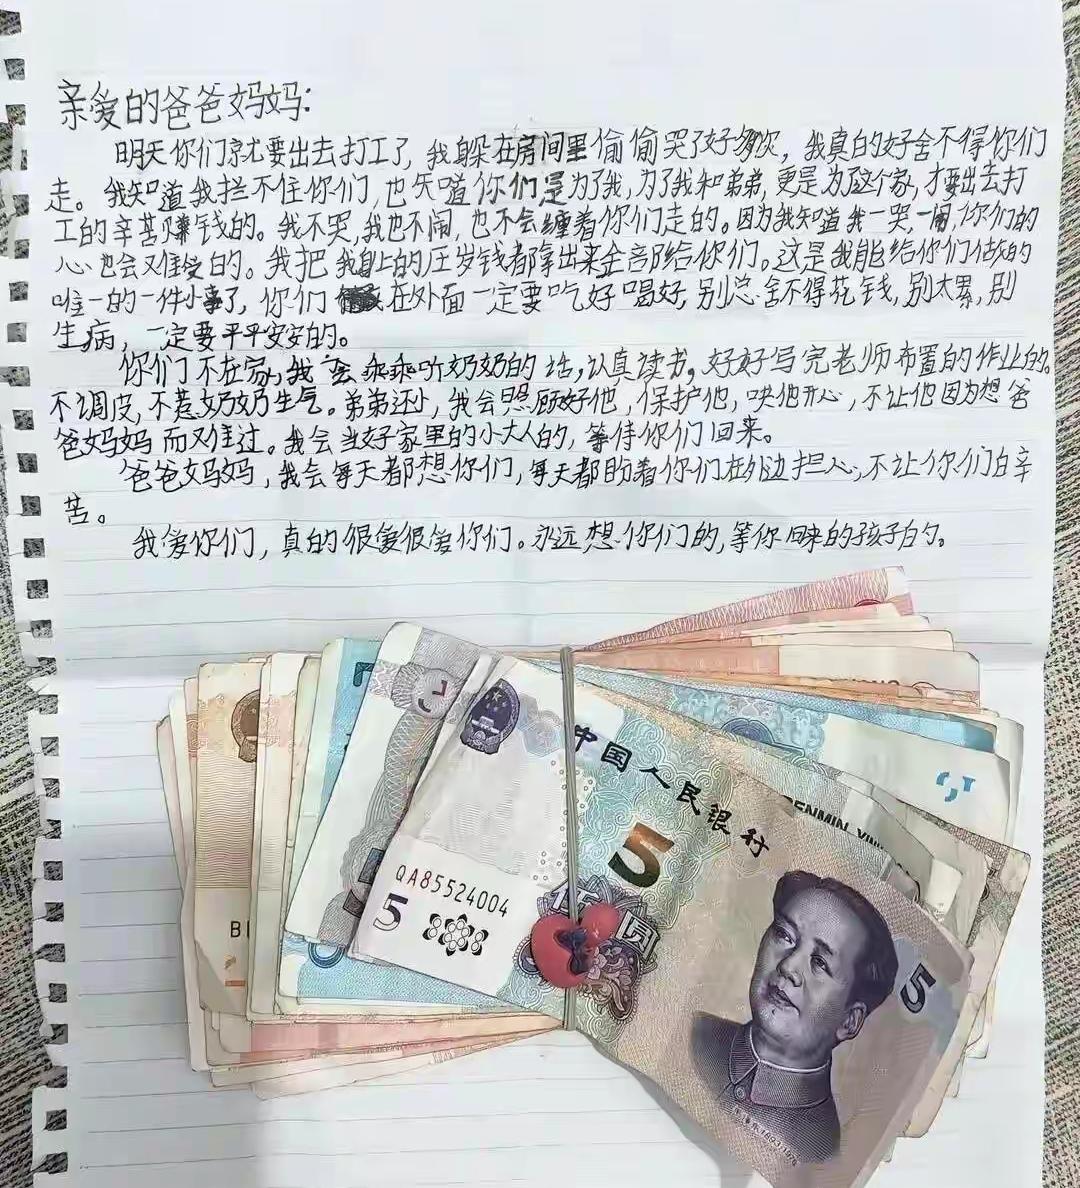 亲爱的爸爸妈妈:
明天你们就要出去打工了,我躲在房间里偷偷哭了好多次,我真的好舍不得你们
走。我知道我拦不住你们,也知道你们是为了我,为了我和弟弟,更是为了这个家,才要出去打
工的辛苦赚钱的。我不哭,我也不闹,也不会缠着你们走的。因为我知道我一哭,一闹,你们的
心也会难受的。我把我身上的压岁钱都拿出来全部给你们。这是我能给你们做的
唯一的一件小事了,你们在外面一定要吃好喝好,别总舍不得花钱,别太累,别
生病,一定要平平安安的。
你们不在家,我会乖乖听奶奶的话,认真读书,好好写完老师布置的作业的。
不调皮,不惹奶奶生气。弟弟还小,我会照顾好他,保护他,哄他开心,不让他因为想爸
爸妈妈而难过。我会当好家里的小大人的,等待你们回来。
爸爸妈妈,我会每天都想你们,每天都盼着你们在外边担心,不让你们白辛
苦。
我爱你们,真的很爱很爱你们。永远想你们的,等你回来的孩子的。
中国人民银行
5
伍圆
QA85524004
5
5